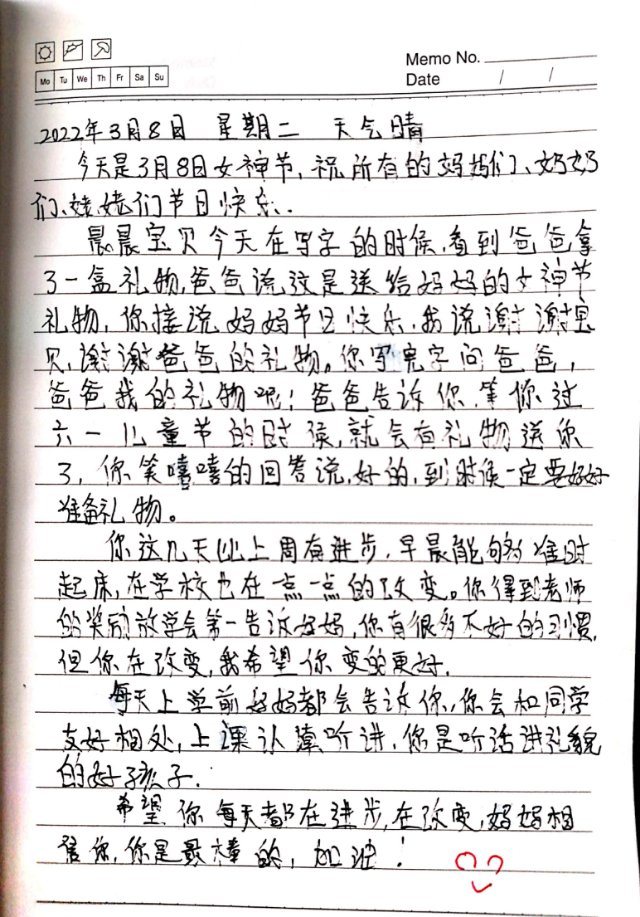 Memo No.
Mo Tu We Th Fr Sa Su
Date / /
2022年3月8日 星期二 天气晴
今天是3月8日女神节,祝所有的妈妈们、奶奶
们、姥姥们节日快乐.
晨晨宝贝今天在写字的时候,看到爸爸拿
了一盒礼物,爸爸说这是送给妈妈的女神节
礼物,你接说妈妈节日快乐,我说谢谢宝
贝,谢谢爸爸的礼物。你写完字问爸爸,
爸爸我的礼物呢!爸爸告诉你,等你过
六一儿童节的时候,就会有礼物送你
了,你笑嘻嘻的回答说,好的,到时候一定要好好
准备礼物。
你这几天比上周有进步,早晨能够准时
起床,在学校也在一点一点的改变。你得到老师
的奖励放学会第一告诉妈妈,你有很多不好的习惯,
但你在改变,我希望你变的更好.
每天上学前妈妈都会告诉你,你会和同学
友好相处,上课认真听讲,你是听话讲礼貌
的好孩子.
希望你每天都在进步,在改变,妈妈相
信你,你是最棒的,加油!